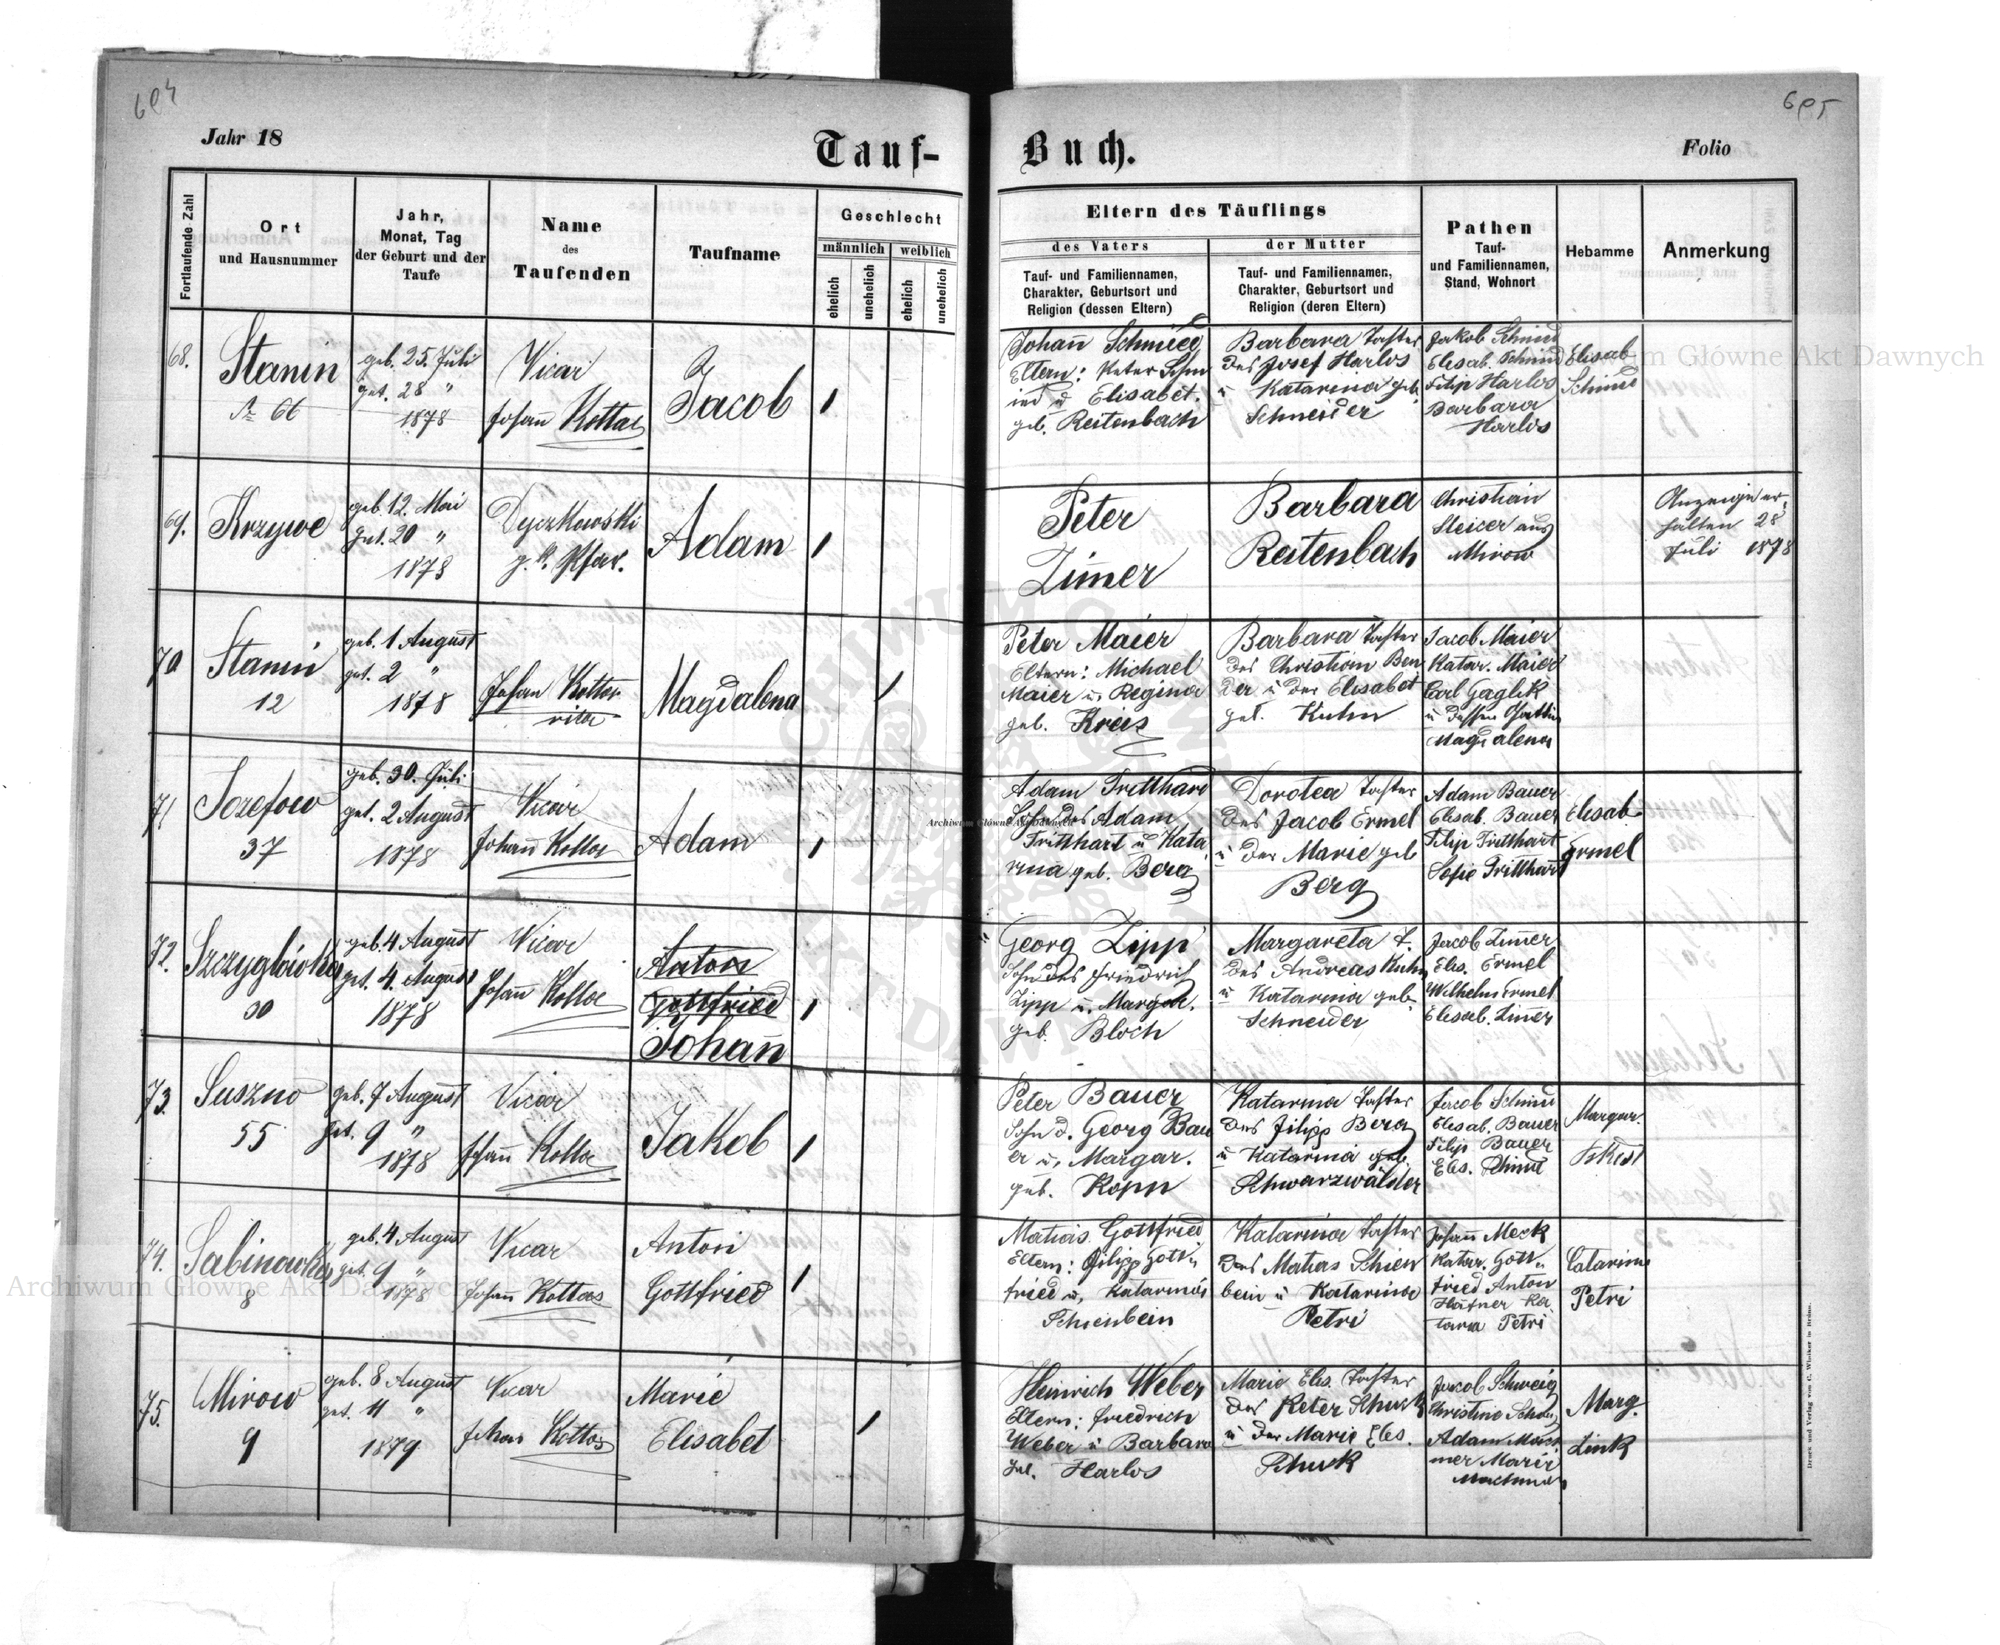 604
605
Jahr 18
Tauf-
Buch.
Folio
Fortlaufende Zahl
Ort
und Hausnummer
Jahr,
Monat, Tag
der Geburt und der
Taufe
Name
des
Taufenden
Taufname
Geschlecht
männlich
weiblich
ehelich
unehelich
ehelich
unehelich
Eltern des Täuflings
des Vaters
der Mutter
Tauf- und Familiennamen,
Charakter, Geburtsort und
Religion (dessen Eltern)
Tauf- und Familiennamen,
Charakter, Geburtsort und
Religion (deren Eltern)
Pathen
Tauf-
und Familiennamen,
Stand, Wohnort
Hebamme
Anmerkung
68.
Stanin
№ 66
geb. 25. Juli
get. 28 "
1878
Vicar
Johann Kottas
Jacob
Johann Schmied
Eltern: Peter Schm
ied u Elisabet.
geb. Reitenbach
Barbara Tochter
des Josef Harlos
u Katarina geb.
Schneider
Jakob Schmid
Elisab. Schmid
Filip Harlos
Barbara
Harlos
Elisab
Schmid
69.
Krzywe
geb. 12. Mai
get. 20 "
1878
g. k. Pfar.
Adam
Peter
Zimmer
Barbara
Reitenbach
Christian
aus
Mirow
Anzeige er-
halten 28
Juli 1878
70
Stanin
12
geb. 1 August
get. 2 "
1878
Johann Kottas
Magdalena
Peter Maier
Eltern: Michael
Maier u. Regina
geb. Kreis
Barbara Tochter
des Christian Ben
der u der Elisabet
get. Kuhn
Jacob Maier
Katar. Maier
Carl Gaglik
u dessen Gattin
Magdalena
71
Jozefow
37
geb. 30. Juli
get. 2 August
1878
Vicar
Johann Kottas
Adam
Adam Tritthard
Sohn des Adam
Tritthart u Kata
rina geb. Berg
Dorotea Tochter
des Jacob Ermel
u der Marie geb
Berg
Adam Bauer
Elisab. Bauer
Filip Tritthart
Sofie Tritthart
Elisab.
Ermel
72.
Szczyglowka
30
geb. 4 August
get. 4. August
1878
Vicar
Johann Kottas
Anton
Gottfried
Johann
Georg Zipp
Sohn des Friedrich
Zipp u. Margar.
geb. Bloch
Margareta T.
des Andreas Kuhn
u Katarina geb
Schneider
Jacob Zimmer
Elis. Ermel
Wilhelm Ermel
Elisab. Zimmer
73.
Suszno
55
geb. 7 August
get. 9 "
1878
Vicar
Johann Kottas
Jakob
Peter Bauer
Sohn d. Georg Bau
er u. Margar.
geb. Kopp
Katarina Tochter
des Filipp Berg
u Katarina geb.
Schwarzwälder
Jacob Schmid
Elisab. Bauer
Filip Bauer
Elis. Schmid
Margar.
74.
Sabinowka
8
geb. 4 August
get. 9 "
1878
Vicar
Johann Kottas
Anton
Gottfried
Matias Gottfried
Eltern: Filipp Gott
fried u. Katarina
Schienbein
Katarina Tochter
des Matias Schien
bein u Katarina
Petri
Johann Meck
Katar. Gott
fried Anton
Hafner Ka
tarina Petri
Catarina
Petri
75.
Mirow
9
geb. 8 August
get. 11 "
1879
Vicar
Johan Kottas
Marie
Elisabet
Heinrich Weber
Eltern: Friedrich
Weber u Barbara
geb. Harlos
Marie Elis. Tochter
des Peter Schuck
u der Marie Elis.
Schuck
Jacob Schweig
Christine
Adam
Marie
Marg.
Link
Druck und Verlag von C. Winiker in Brünn.
Archiwum Główne Akt Dawnych
Archiwum Główne Akt Dawnych
Archiwum Główne Akt Dawnych